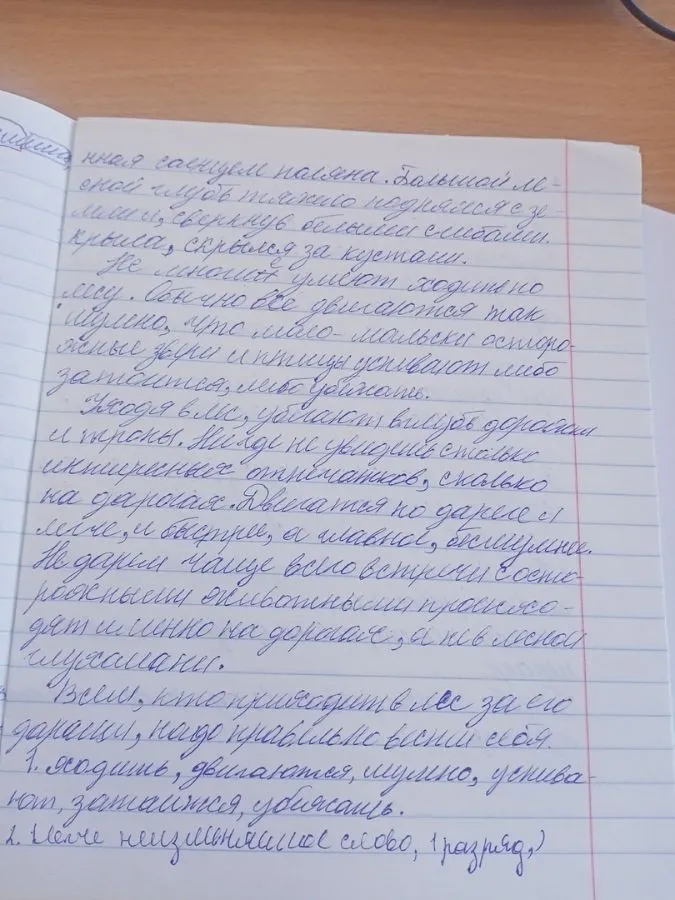 нная солнцем поляна. Большой ле-
сной глубь тяжело поднялся с зе-
мли и, сверкнув белыми сгибами
крыла, скрылся за кустами.
Не многие умеют ходить по
лесу. Обычно все двигаются так
шумно, что мало-мальски осторо-
жные звери и птицы успивают либо
затоится, либо убежать.
Уходя в лес, убегают вглубь дорожки
и тропы. Нигде не увидешь столько
интиресных отпечатков, сколько
на дарогах. Двигатся по дароге и
легче, и быстрее, а главное, бесшумнее.
Не даром чаще всего встречи с осто-
рожными животными происхо-
дят именно на дорогах, а не в лесной
глухомани.
Всем, кто приходить в лес за его
дарами, надо правельно вести себя.
1. Ходить, двигаются, шумно, успива-
ют, затаится, убижать.
2. Легче неизменяемое слово, 1 разряд,)